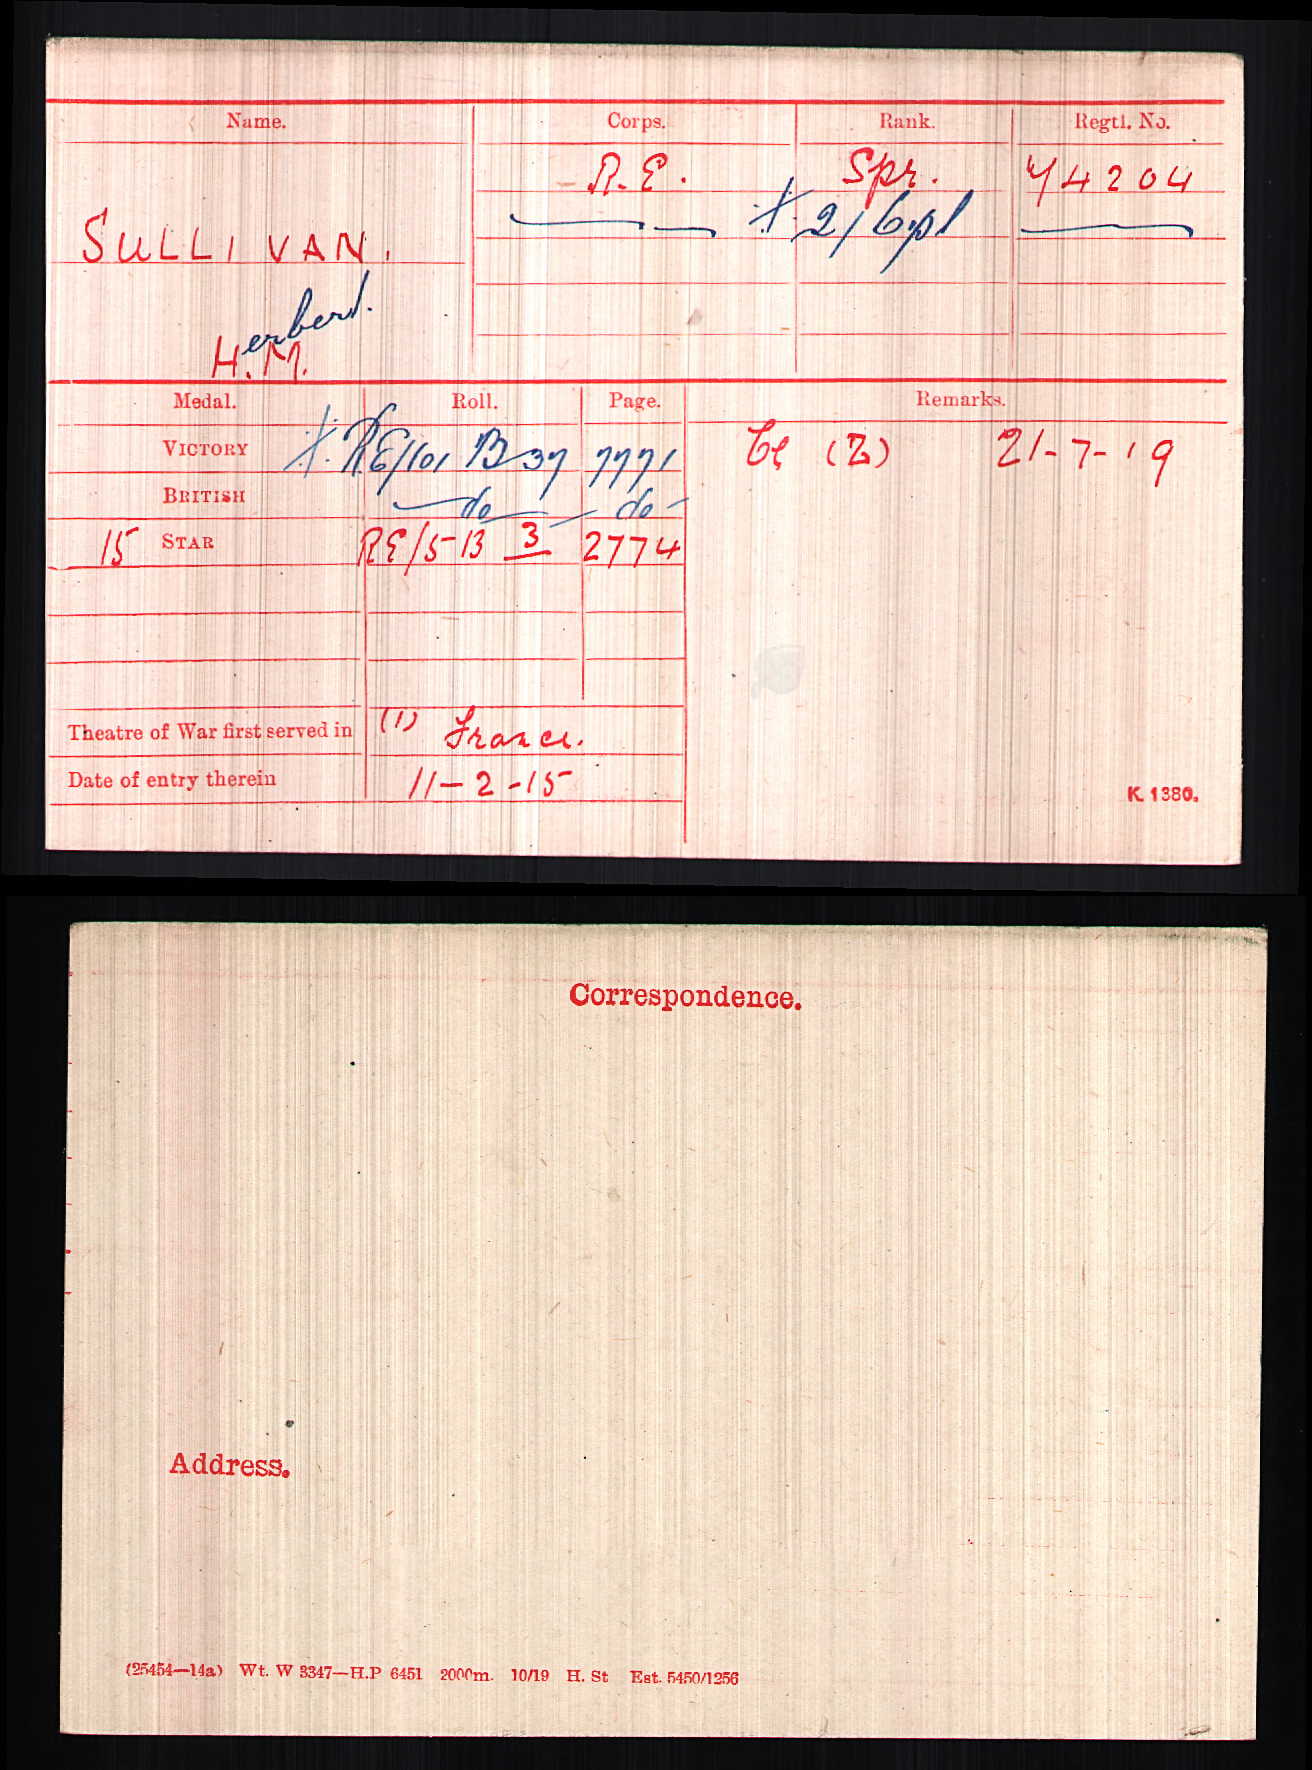 Name. Corps. Rank. Regtl. No.
R.E. Spr. 74204
2/Cpl
SULLIVAN.
erbert.
H.M.
Medal. Roll. Page. Remarks.
VICTORY RE/101 B37 7771 Cl (Z) 21-7-19
BRITISH do do
15 STAR RE/5B 3 2774
Theatre of War first served in (1) France.
Date of entry therein 11-2-15
K. 1380.
Correspondence.
Address.
(25454—14a) Wt. W 3347—H.P 6451 2000m. 10/19 H. St Est. 5450/1256